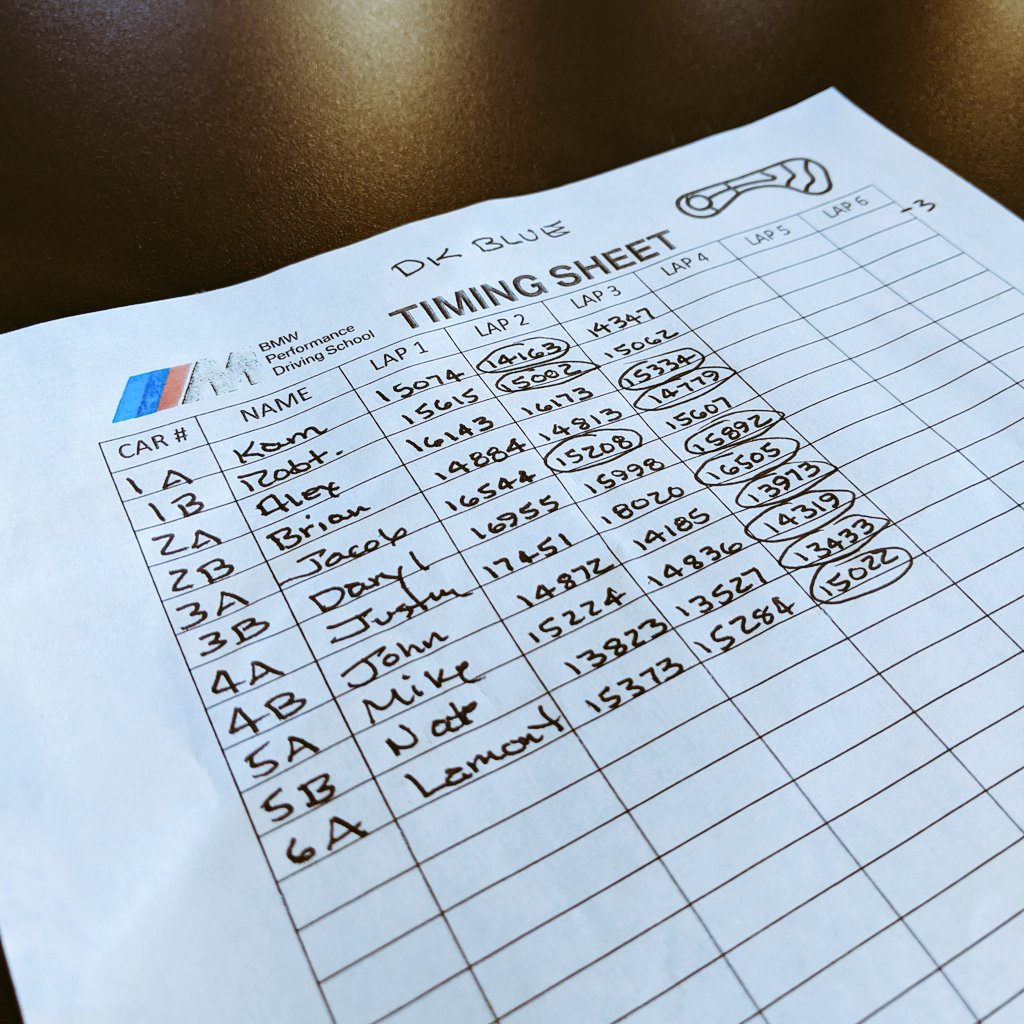 DK BLUE
BMW
Performance
Driving School
TIMING SHEET
CAR # NAME LAP 1 LAP 2 LAP 3 LAP 4 LAP 5 LAP 6
-3
1A Kam 15074 14163 14347
1B Robt. 15615 15002 15062
2A Alex 16143 16173 15334
2B Brian 14884 14813 14779
3A Jacob 16544 15208 15607
3B Daryl 16955 15998 15892
4A Justin 17451 18020 16505
4B John 14872 14185 13973
5A Mike 15224 14836 14319
5B Nate 13823 13527 13433
6A Lamont 15373 15284 15022